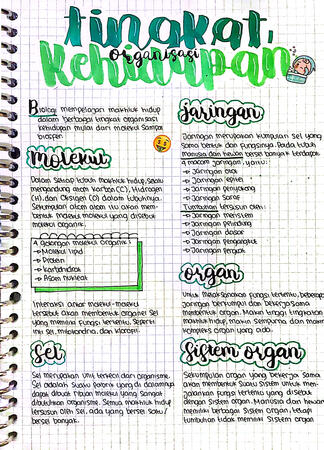 tingkat
organisasi
kehidupan
Biologi mempelajari makhluk hidup
dalam berbagai tingkat organisasi
kehidupan mulai dari molekul sampai
biosfer.
molekul
Dalam setiap tubuh makhluk hidup, suatu
mengandung atom karbon (C), Hidrogen
(H), dan Oksigen (O) dalam tubuhnya.
Sekumpulan atom atom itu akan mem-
bentuk molekul molekul yang disebut
molekul organik.
4 Golongan molekul organik :
→ Molekul lipid
→ Protein
→ karbohidrat
→ Asam nukleat
Interaksi antar molekul-molekul
tersebut akan membentuk organel sel
yang memiliki fungsi tertentu. Seperti
inti sel, mitokondria, dan kloroplas.
sel
Sel merupakan unit terkecil dari organisme.
Sel adalah suatu pabrik yang di dalamnya
dapat dibuat ribuan molekul yang sangat
dibutuhkan organisme. Semua makhluk hidup
tersusun oleh sel, ada yang bersel satu/
bersel banyak.
jaringan
Jaringan merupakan kumpulan sel yang
sama bentuk dan fungsinya. Pada tubuh
manusia dan hewan bersel banyak terdapat
4 macam jaringan, yaitu :
→ Jaringan otot
→ Jaringan epitel
→ Jaringan penyokong
→ Jaringan saraf
Tumbuhan tersusun oleh :
→ Jaringan meristem
→ Jaringan pelindung
→ Jaringan dasar
→ Jaringan pengangkut
→ Jaringan
organ
Untuk melaksanakan fungsi tertentu, beberapa
jaringan berkumpul dan bekerja sama
membentuk organ. Makin tinggi tingkatan
makhluk hidup, makin sempurna dan makin
kompleks organ yang ada.
Sistem organ
Sekumpulan organ yang bekerja sama
akan membentuk suatu sistem untuk men-
jalankan fungsi tertentu yang disebut
dengan sistem organ. Manusia dan hewan
memiliki berbagai sistem organ, tetapi
tumbuhan tidak memiliki sistem organ